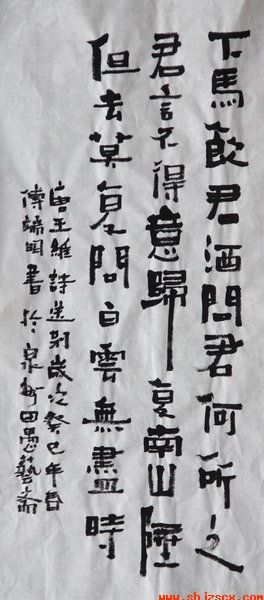 下馬飲君酒問君何所之
君言不得意歸臥南山陲
但去莫复問白雲無盡時
唐王維詩送别歲次癸巳年春
傅端明書於泉州田愚藝斋
www.shjzscx.com